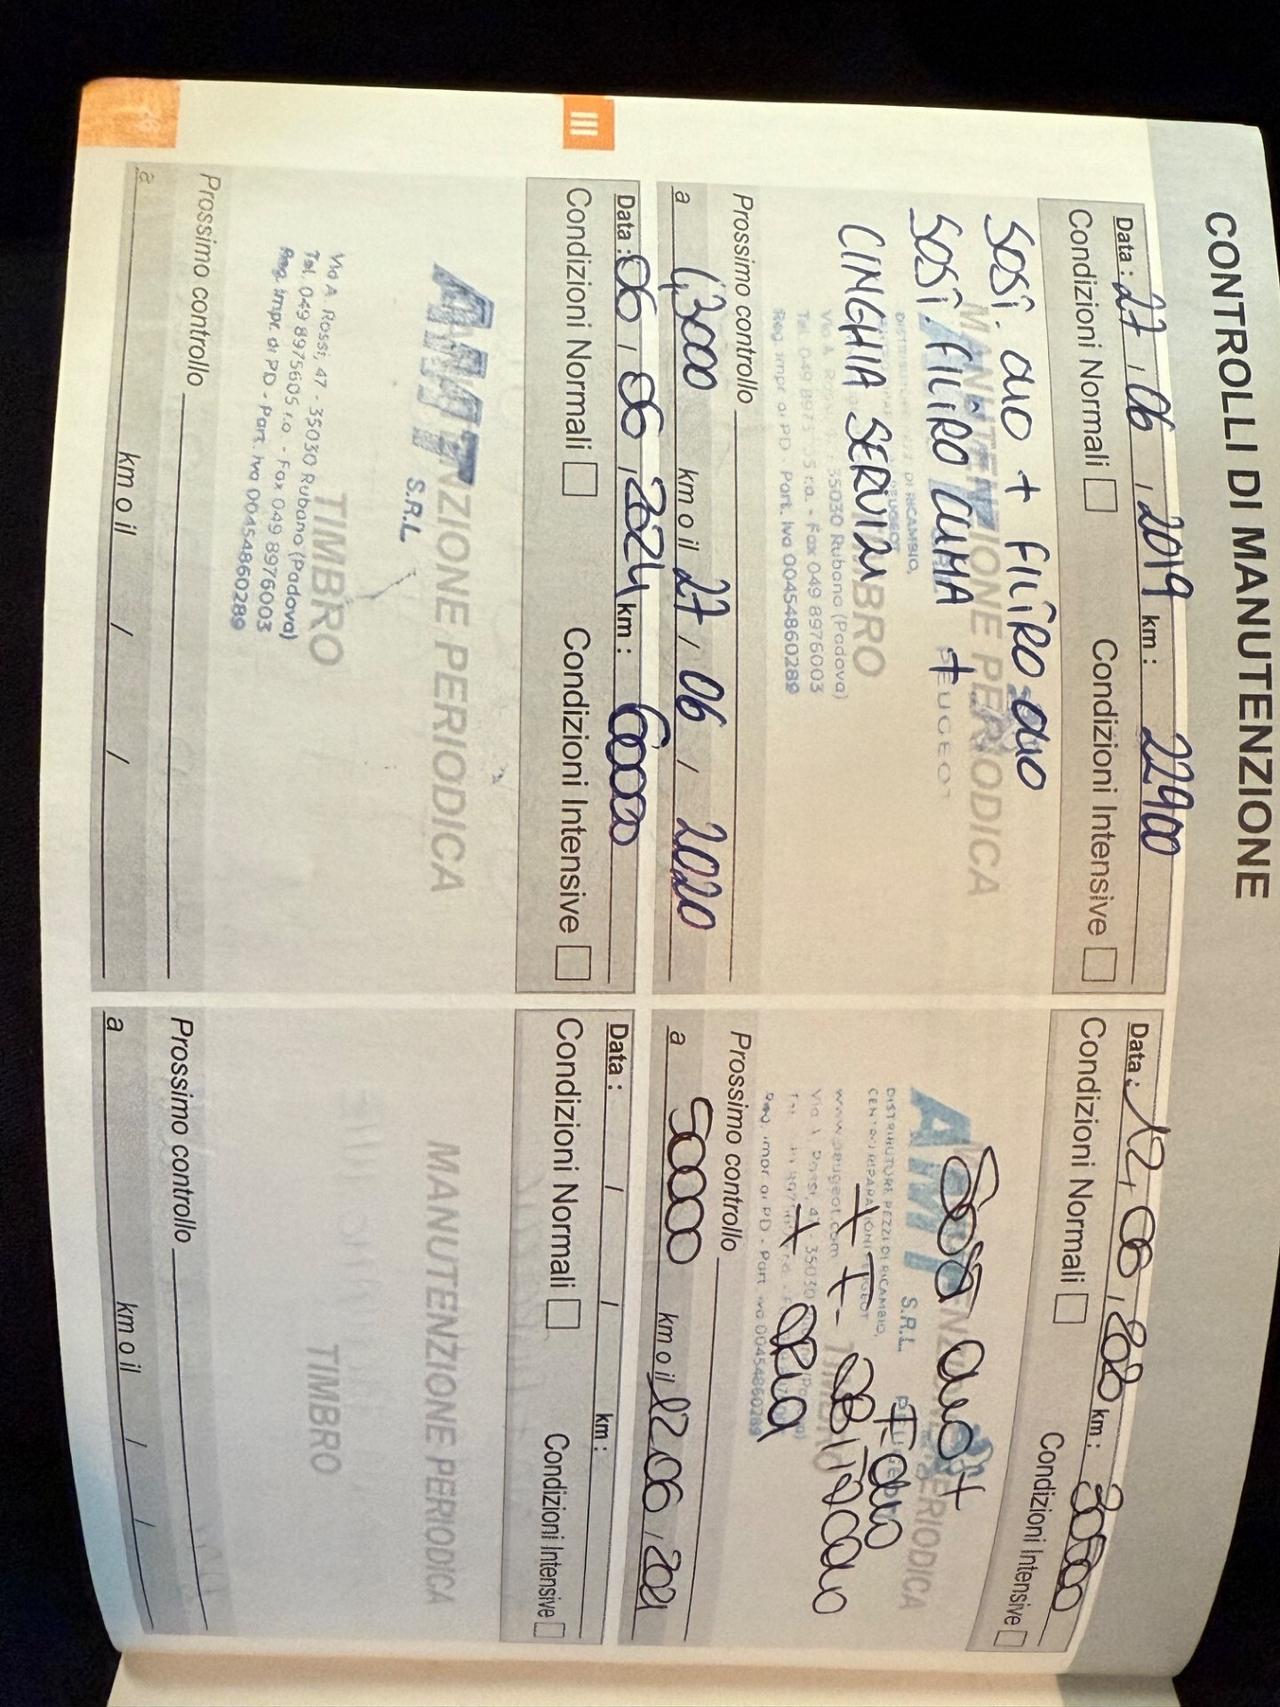 CONTROLLI DI MANUTENZIONE
Data : 27 / 06 / 2019 km : 22900
Condizioni Normali Condizioni Intensive
MANUTENZIONE PERIODICA
SOST. OLIO + FILTRO OLIO
SOST. FILTRO CLIMA +
CINGHIA SERVIZI
PEUGEOT
TIMBRO
Via A. Rossi, 47 - 35030 Rubano (Padova)
Tel. 049 8975605 r.a. - Fax 049 8976003
Reg. Impr. di PD - Part. Iva 00454860289
Prossimo controllo
a 43000 km o il 27 / 06 / 2020
Data : 12 / 06 / 2020 km : 30500
Condizioni Normali Condizioni Intensive
MANUTENZIONE PERIODICA
AMT S.R.L. PEUGEOT
Sost olio +
DISTRIBUTORE PEZZI DI RICAMBIO,
CENTRO RIPARAZIONI PEUGEOT
+ F olio
www.peugeot.com
+ F abitacolo
TIMBRO
+ aria
Via A. Rossi, 47 - 35030
Reg. Impr. di PD - Part. Iva 00454860289
Prossimo controllo
a 50000 km o il 12 06 / 2021
III
Data : 06 / 06 / 2024 km : 60000
Condizioni Normali Condizioni Intensive
MANUTENZIONE PERIODICA
AMT S.R.L.
TIMBRO
Via A. Rossi, 47 - 35030 Rubano (Padova)
Tel. 049 8975605 r.a. - Fax 049 8976003
Reg. Impr. di PD - Part. Iva 00454860289
Prossimo controllo
a km o il / /
Data : / / km :
Condizioni Normali Condizioni Intensive
MANUTENZIONE PERIODICA
TIMBRO
Prossimo controllo
a km o il / /